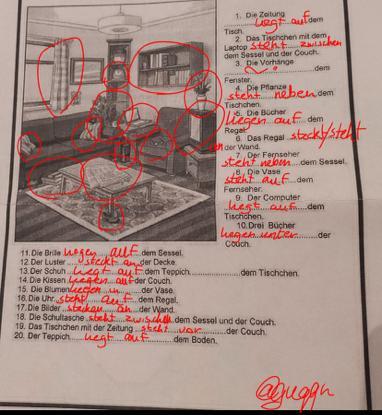 1. Die Zeitung
liegt auf dem
Tisch.
2. Das Tischchen mit dem
Laptop steht zwischen
dem Sessel und der Couch.
3. Die Vorhänge
? dem
Fenster.
4. Die Pflanze
steht neben dem
Tischchen.
5. Die Bücher
liegen auf dem
Regal.
6. Das Regal steckt/steht
an der Wand.
7. Der Fernseher
steht neben dem Sessel.
8. Die Vase
steht auf dem
Fernseher.
9. Der Computer
liegt auf dem
Tischchen.
10. Drei Bücher
liegen unter der
Couch.
11. Die Brille liegen auf dem Sessel.
12. Der Luster steckt an der Decke.
13. Der Schuh liegt auf dem Teppich dem Tischchen.
14. Die Kissen liegen auf der Couch.
15. Die Blumen liegen in der Vase.
16. Die Uhr steht auf dem Regal.
17. Die Bilder stecken an der Wand.
18. Die Schultasche steht zwischen dem Sessel und der Couch.
19. Das Tischchen mit der Zeitung steht vor der Couch.
20. Der Teppich liegt auf dem Boden.